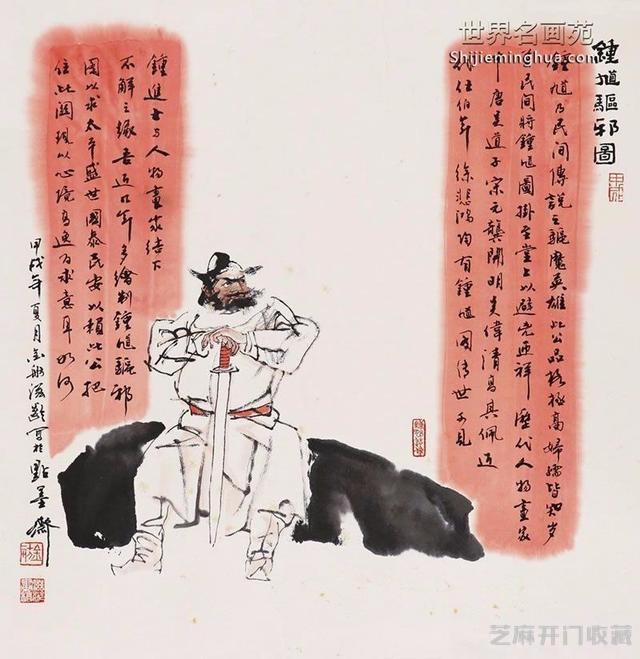 世界名画苑
Shijieminghua.com
鍾馗驅邪圖
鍾馗乃民間傳說之驅魔英雄此公品格極高婦孺皆知歲
民間將鍾馗圖掛至堂上以避兇迎祥歷代人物畫家
中唐吳道子宋元龔開明吳偉清高其佩近
代任伯年徐悲鴻均有鍾馗圖傳世可見
鍾進士与人物畫家結下
不解之緣吾近年多繪制鍾馗驅邪
圖以求太平盛世國泰民安以賴此公把
住此關現以心境高逸为求意耳如何
甲戌年夏月寫於點墨齋
芝麻开门收藏